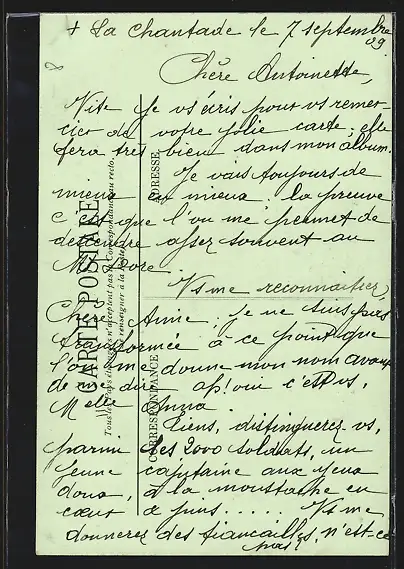 + La Chantade le 7 septembre
09
Chère Antoinette,
Vite je vs écris pour vs remer-
cier de votre jolie carte; elle
fera très bien dans mon album.
Je vais toujours de
mieux en mieux, la preuve
c'est que l'on me permet de
descendre assez souvent au
Vs me reconnaîtrez,
Chère Amie. Je ne suis pas
transformée à ce point que
l'on me donne mon nom avant
de me dire ah! oui c'est vs,
Melle Anna.
Tiens, distinguerez vs,
parmi les 2000 soldats, un
jeune capitaine aux yeux
doux, à la moustache en
cœur & puis..... Vs me
donnerez des fiancailles, n'est-ce
pas
CARTE POSTALE
Tous les pays étrangers n'acceptent pas la Correspondance au recto.
se renseigner à la Poste
CORRESPONDANCE
ADRESSE